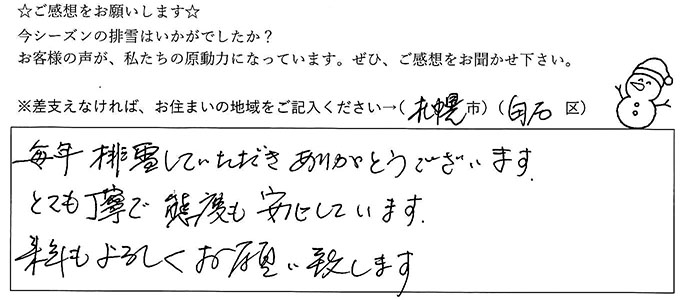 ☆ご感想をお願いします☆
今シーズンの排雪はいかがでしたか？
お客様の声が、私たちの原動力になっています。ぜひ、ご感想をお聞かせ下さい。
※差支えなければ、お住まいの地域をご記入ください→（札幌市）（白石 区）
毎年 排雪していただきありがとうございます.
とても丁寧で 態度も 安心しています.
来年もよろしくお願い致します